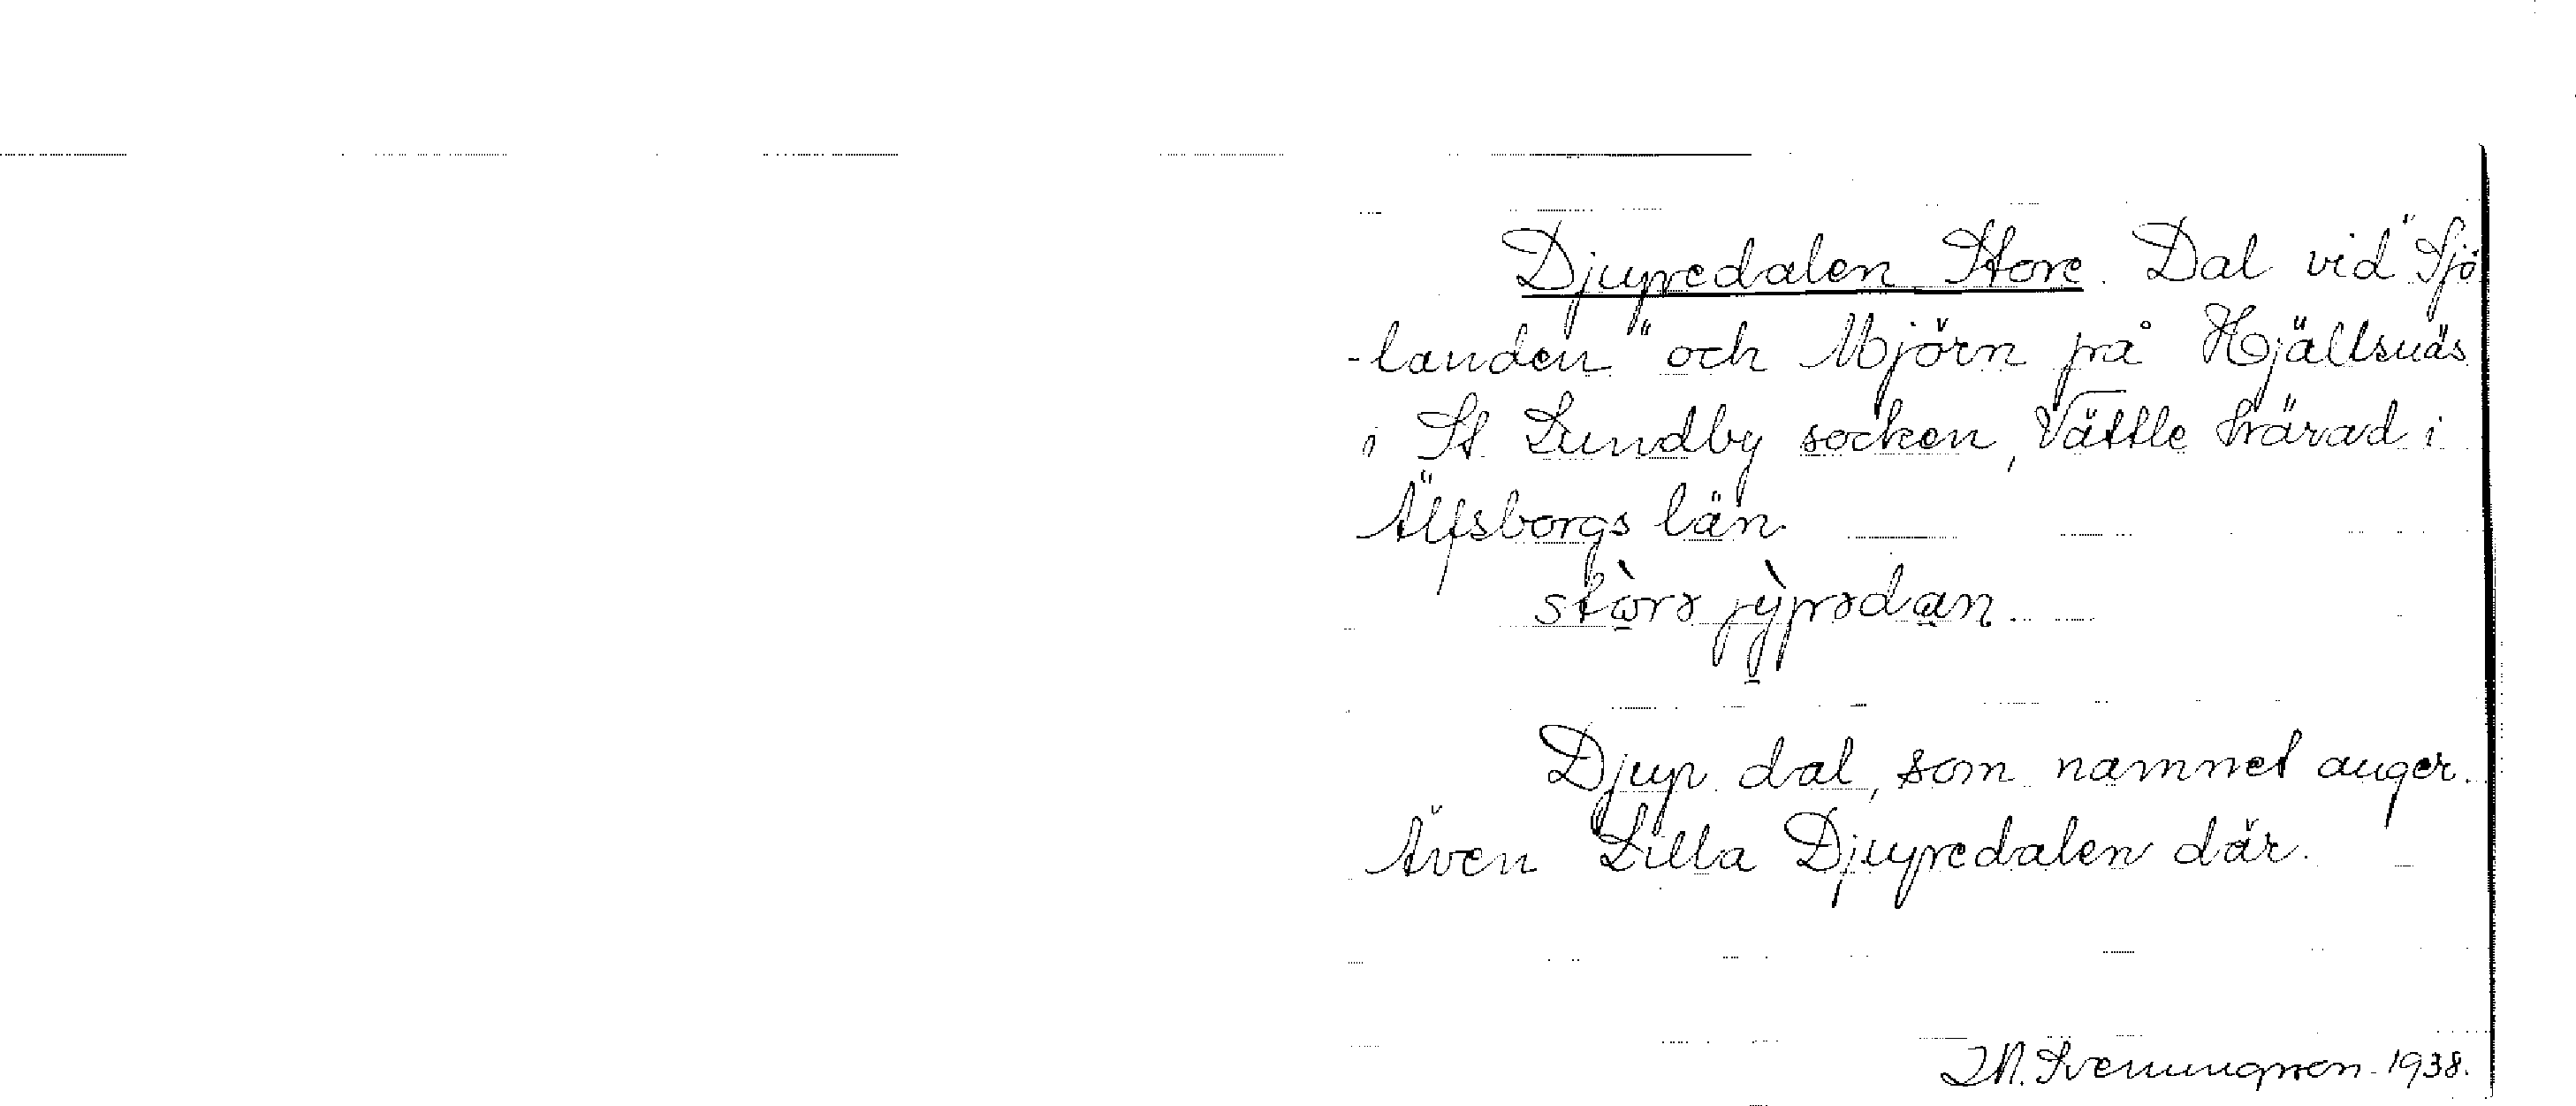 Djupedalen, Store. Dal vid "Sjö
-landen" och Mjörn på Hjällsnäs
i St. Lundby socken, Vättle härad i
Älfsborgs län
stòrə jỳpədan.
Djup dal, som namnet anger.
Även Lilla Djupedalen där.
J.N. Svenungsson. 1938.